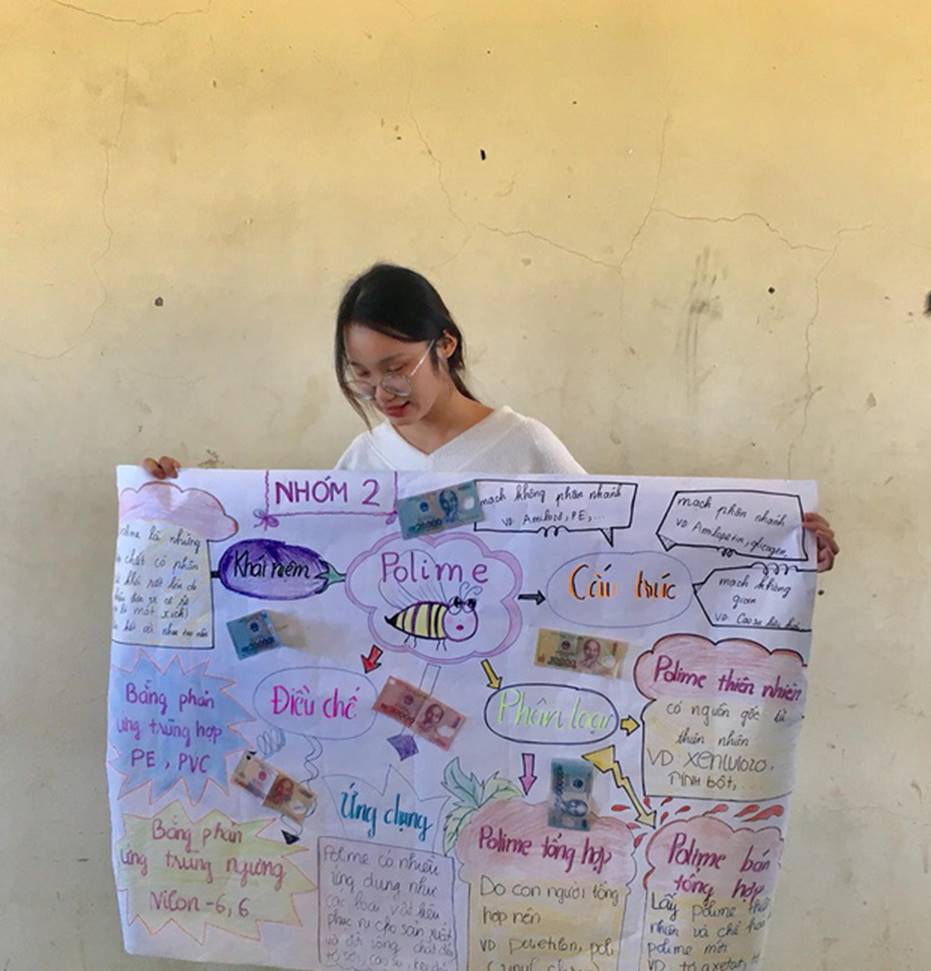 NHÓM 2
Polime
Khái niệm
polime là những
chất có phân
tử khối rất lớn do
một xích)
Cấu trúc
mạch không phân nhánh
VD Amilozo, PE, ...
mạch phân nhánh
VD Amilopectin, glicogen,
mạch không
gian
VD Cao su lưu hóa
Điều chế
Bằng phản
ứng trùng hợp
PE, PVC
Bằng phản
ứng trùng ngưng
Nilon-6,6
Ứng dụng
Polime có nhiều
ứng dụng như
các loại vật liệu
phục vụ cho sản xuất
và đời sống chất dẻo
tơ sợi, cao su, keo dán
Phân loại
Polime thiên nhiên
có nguồn gốc từ
thiên nhiên
VD Xenlulozo,
tinh bột,
Polime tổng hợp
Do con người tổng
hợp nên
VD polietilen, poli
Polime bán
tổng hợp
Lấy polime thiên
nhiên và chế hóa
polime mới
VD tơ axetat,